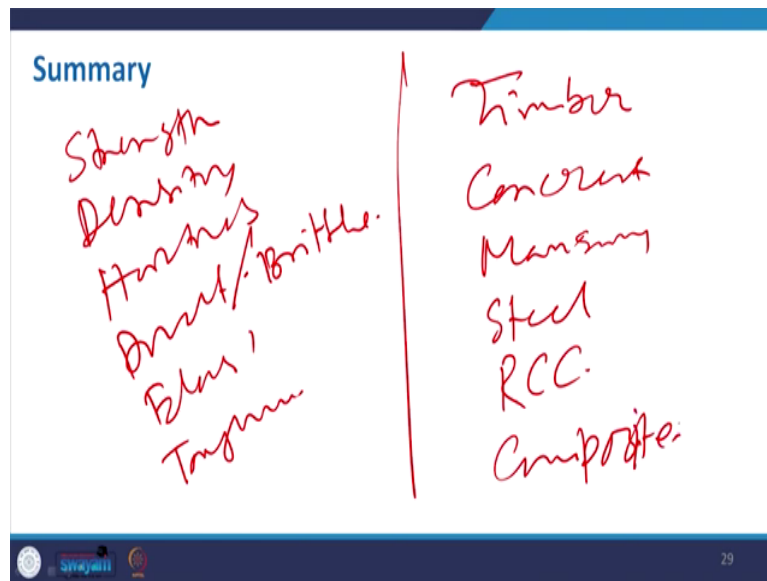 Summary
Strength
Density
Hardness
Duct/Brittle.
Elas
Toughn
Timber
Concrete
Masonry
Steel
RCC.
Composite.
swayam
29